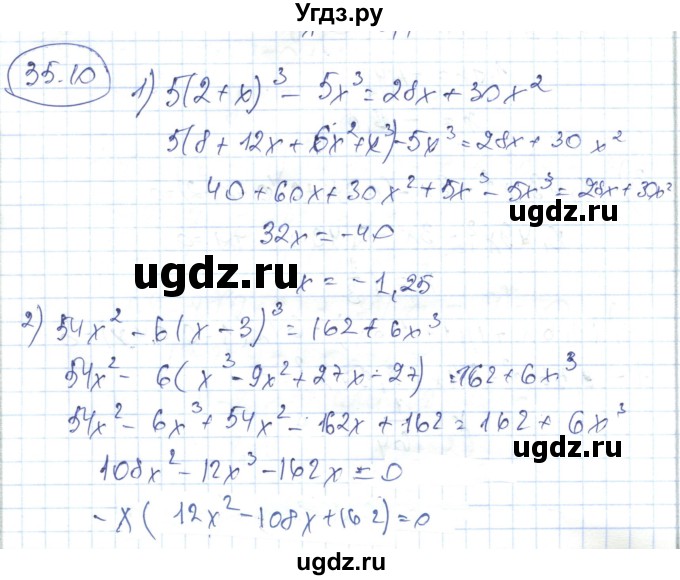 Угдз.ру
35.10
1) 5(2+x)³ - 5x³ = 28x + 30x²
5(8 + 12x + 6x² + x³) - 5x³ = 28x + 30x²
40 + 60x + 30x² + 5x³ - 5x³ = 28x + 30x²
ugdz.ru
32x = -40
ugdz.ru
x = -1,25
2) 54x² - 6(x - 3)³ = 162 + 6x³
ugdz.ru
54x² - 6(x³ - 9x² + 27x - 27) = 162 + 6x³
54x² - 6x³ + 54x² - 162x + 162 = 162 + 6x³
ugdz.ru
108x² - 12x³ - 162x = 0
-x(12x² - 108x + 162) = 0
ugdz.ru
ugdz.ru